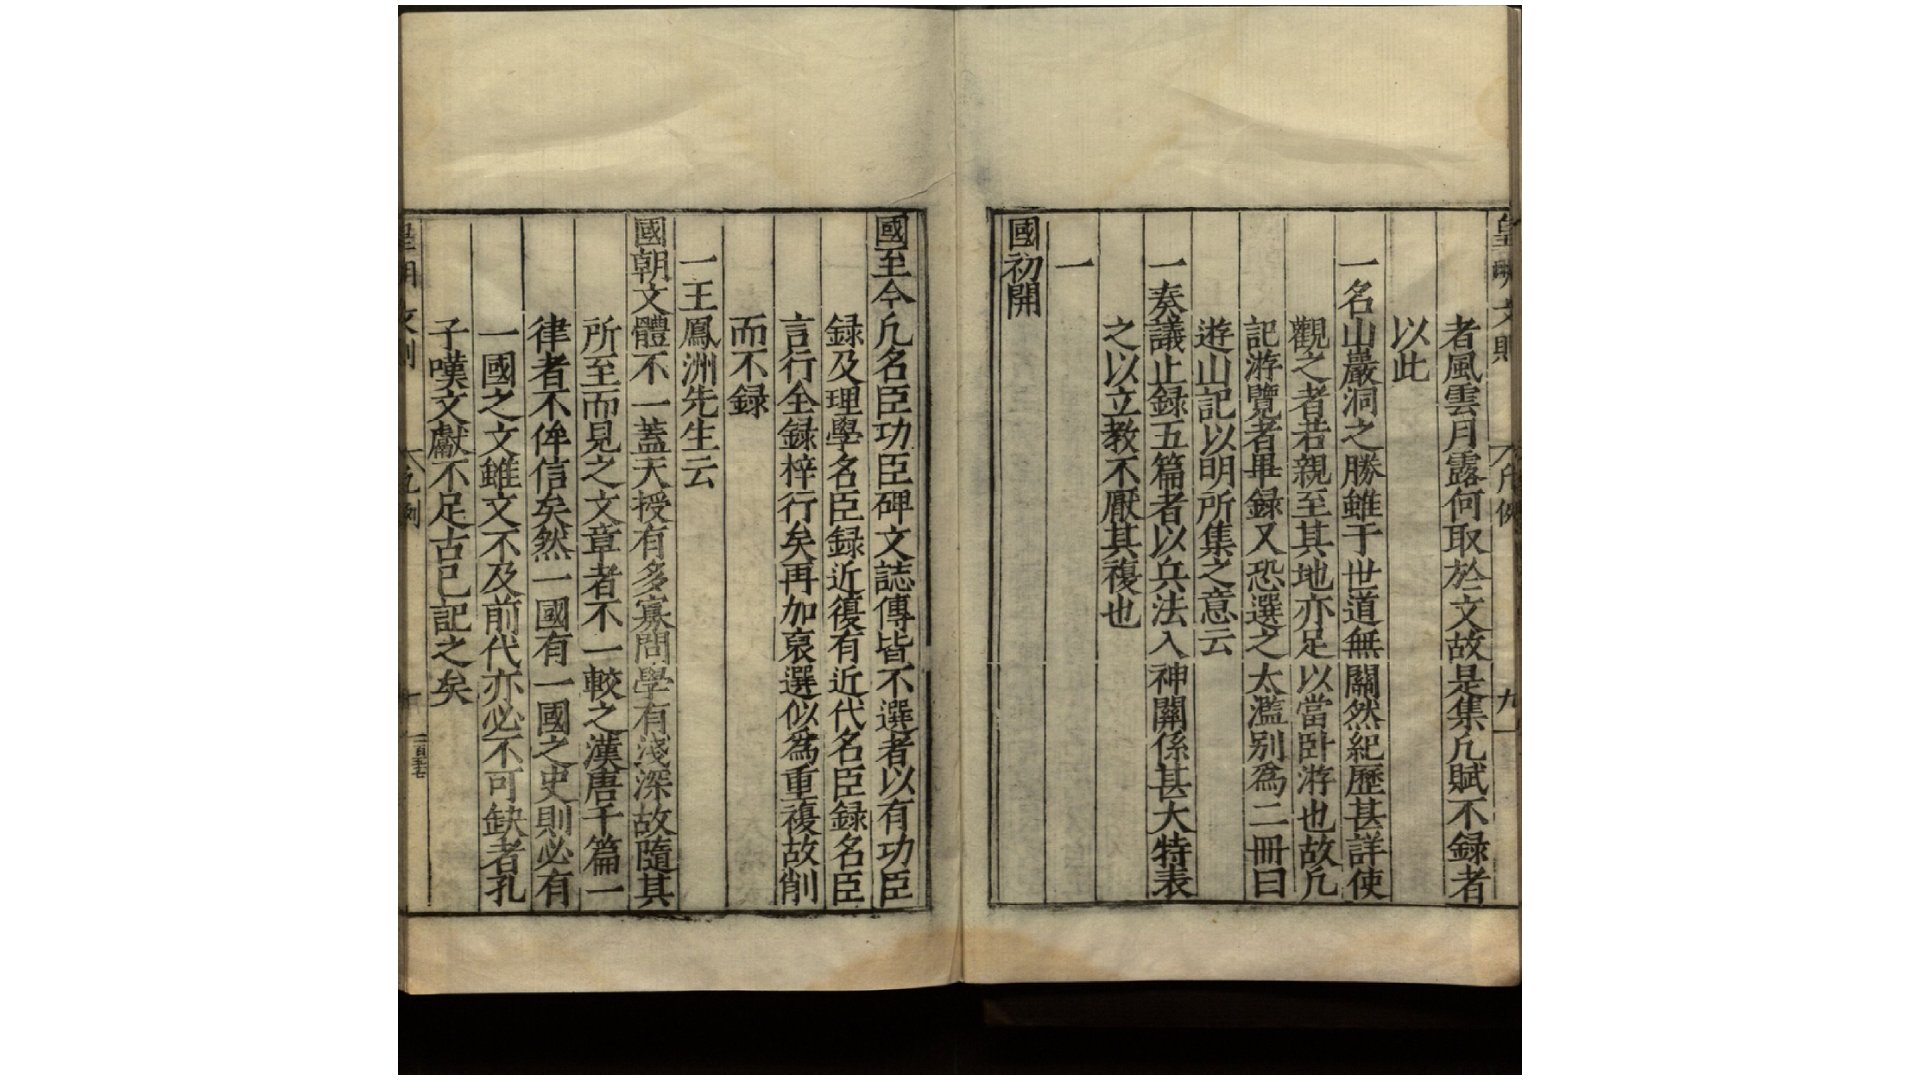 皇明文則
凡例
九
者風雲月露何取於文故是集凢賦不錄者
以此
一名山巖洞之勝雖于世道無關然紀歷甚詳使
觀之者若親至其地亦足以當卧游也故凢
記游覽者畢錄又恐選之太濫别爲二冊曰
遊山記以明所集之意云
一奏議止録五篇者以兵法入神關係甚大特表
之以立教不厭其複也
一
國初開
國至今凢名臣功臣碑文誌傳皆不選者以有功臣
録及理學名臣録近復有近代名臣録名臣
言行全録梓行矣再加裒選似爲重複故削
而不録
一王鳳洲先生云
國朝文體不一蓋天授有多寡問學有淺深故隨其
所至而見之文章者不一較之漢唐千篇一
律者不侔信矣然一國有一國之史則必有
一國之文雖文不及前代亦必不可缺者孔
子嘆文獻不足古已記之矣